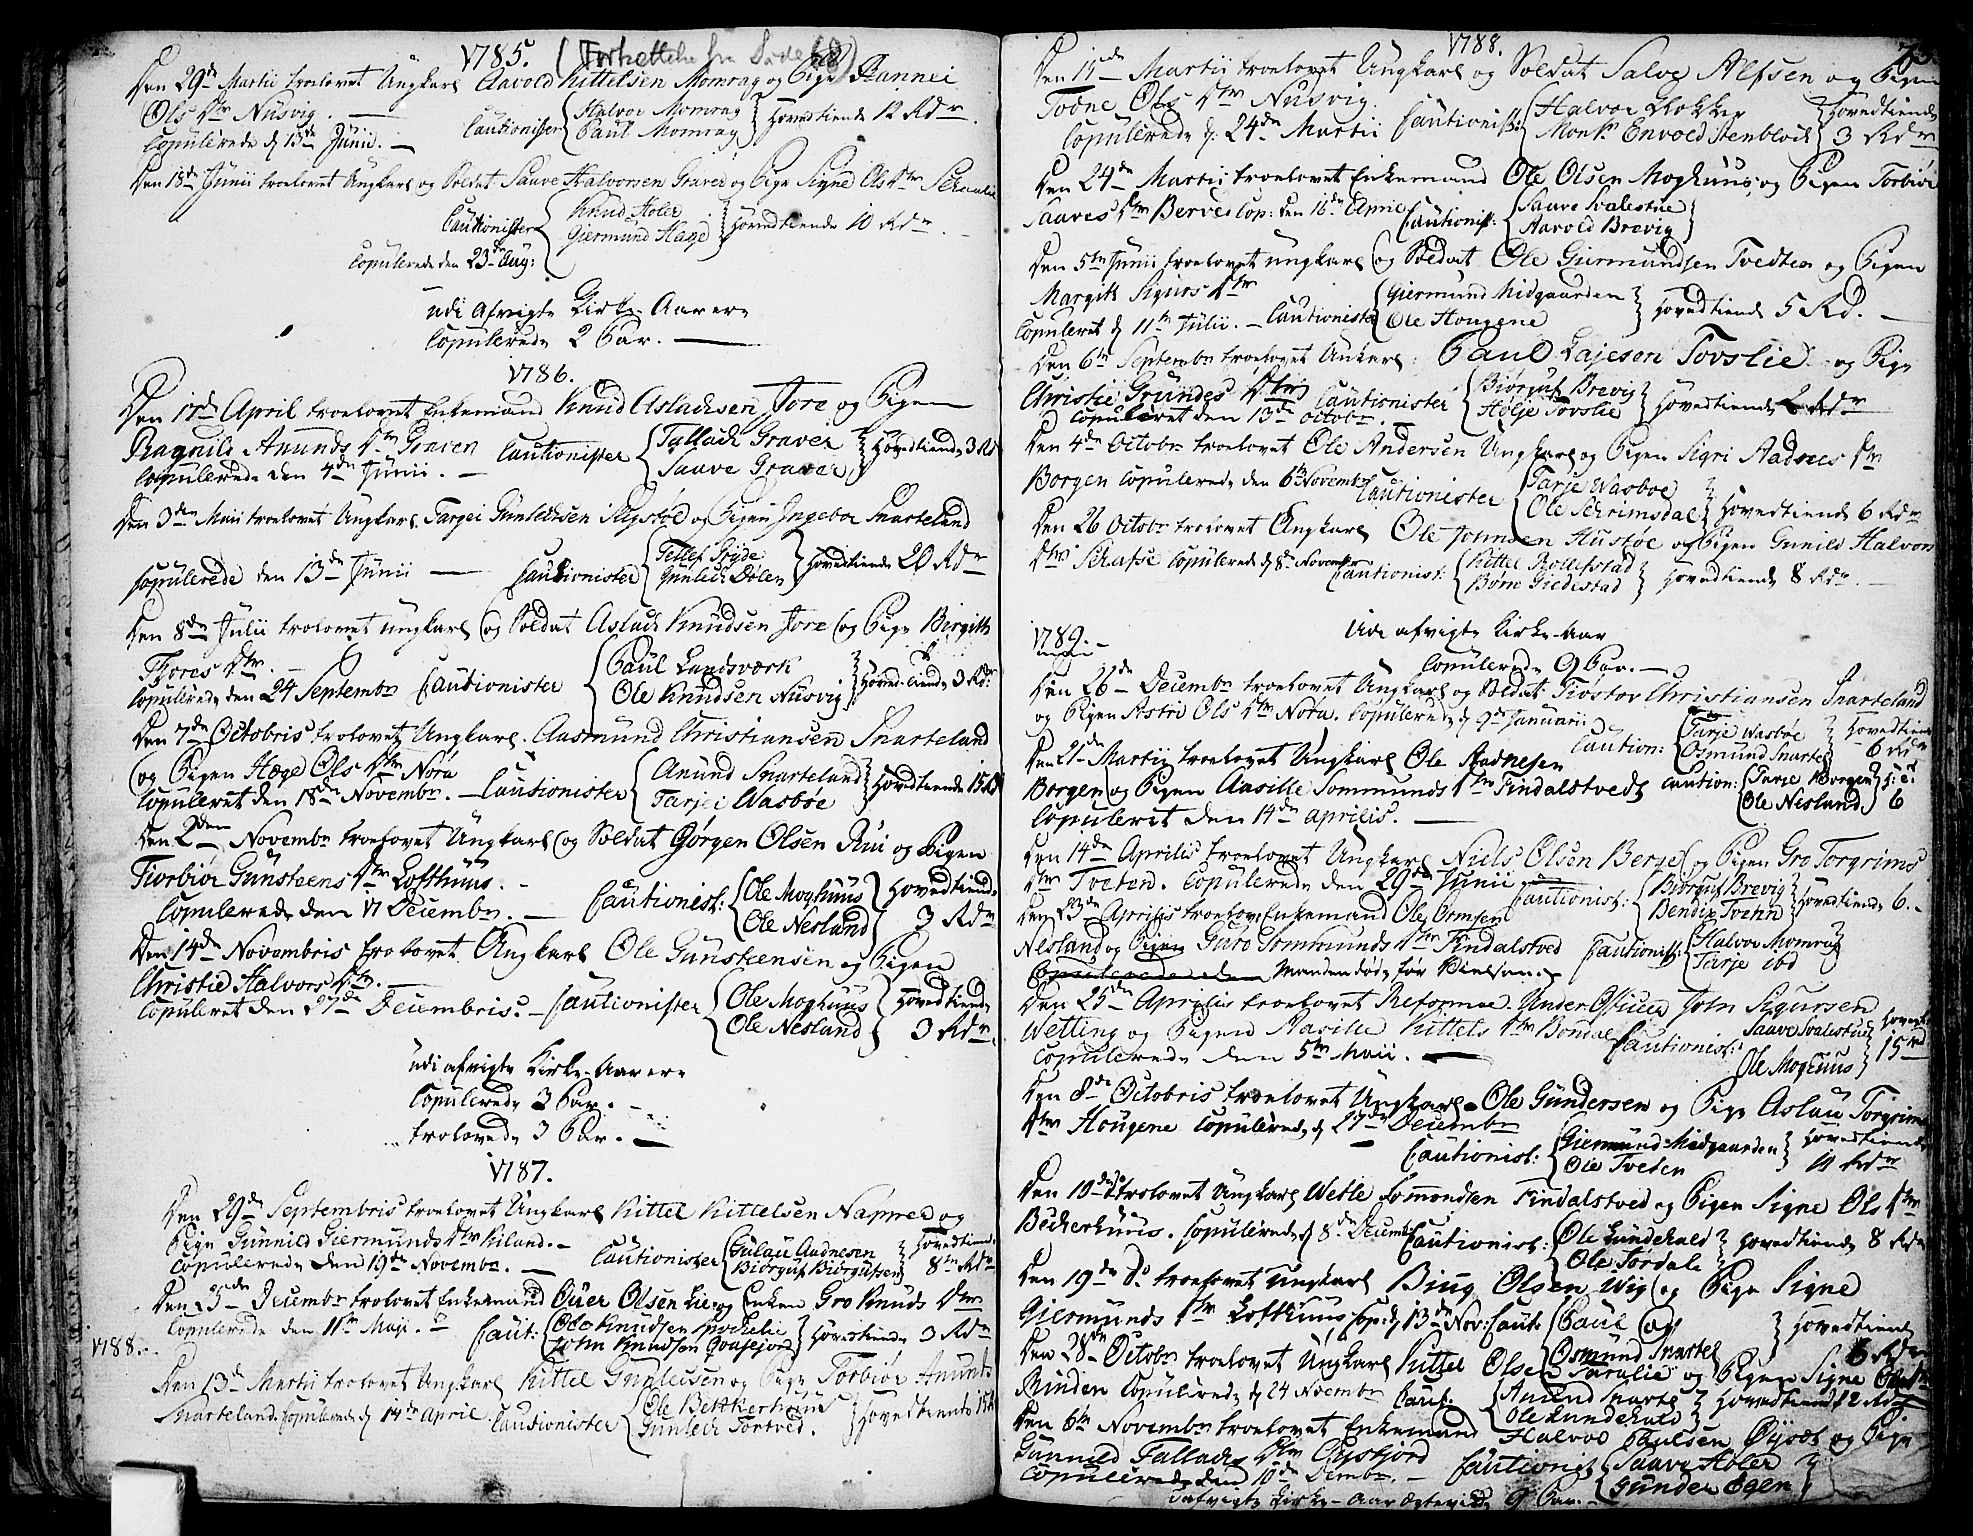 1785. (Fortsettelse fra Side 68)
Den 29de Martii troelovet Ungkarl Aavold Kittelsen Momrag og Pige Rannei
Ols Dtr Nusvig.
Cautionister Halvor Momrag Paul Momrag Hovedtiende 12 Rdr.
Copulerede d 13de Junii.
Den 18de Junii troelovet Ungkarl og Soldat Saave Halvorsen Graved og Pige Signe Ols Dtr
Cautionister Knud Holer Giermund Hage Hovedtiende 10 Rdr.
Copulerede den 23de Aug:
udi afvigte Kirke-Aar ere
Copulerede 2 Par.
1786.
Den 17de April troelovet Enkemand Knud Aslachsen Jore og Pigen
Ragnild Anunds Dtr Graven Cautionister Tallach Graver Saave Graver Hovedtiende 3 Rd
Copulerede den 4de Junii.
Den 3de Maii troelovet Ungkarl Targei Gunlechsen og Pigen Ingebor Snarteland
Copulerede den 13de Junii Cautionister Tellef Gryde Gunlech Dølen Hovedtiende 20 Rdr
Den 8de Julii trolovet ungkarl og Soldat Aslach Knudsen Jore og Pige Birgith
Thores Dtr.
Copulerede den 24 Septembr Cautionister Paul Landsværk Ole Knudsen Nusvig Hovedtiende 3 Rdr
Den 7de Octobris trolovet Ungkarl Aasmund Christiansen Snarteland
og Pigen Hæge Ols Dtr Nora
Copuleret den 18de Novembr. Cautionister Anund Snarteland Tarjei Wasbøe Hovedtiende 15 Rd
Den 2den Novembr troelovet Ungkarl og Soldat Gørgen Olsen Rui og Pigen
Tiorbiør Gunsteens Dtr Lofthuus.
Copulerede den 17 Decembr. Cautionist: Ole Moghuus Ole Nesland Hovedtiende 3 Rdr
Den 14de Novembris trolovet Ungkarl Ole Gunsteensen og Pigen
Christie Halvors Dtr.
Copuleret den 27de Decembris. Cautionister Ole Moghuus Ole Nesland Hovedtiende 3 Rdr.
udi afvigte Kirke-Aar ere
Copulerede 3 Par.
trolovede 3 Par.
1787.
Den 29de Septembris troelovet Ungkarl Kittel Kittelsen Napred og
Pige Gunnild Giermunds Dtr Kiland.
Copulerede den 19de Novembr. Cautionister Gulau Aadnesen Biørguf Biørgufsen Hovedtiende 8 Rdr
Den 3de Decembr trolovet Enkemand Ouer Olsen Lie og Enken Gro Knuds Dtr
Copulerede den 11te Maji. Caut: Ole Knudsen John Knudsen Hovedtiende 3 Rdr
1788.
Den 13de Martii trolovet Ungkarl Kittel Gunleisen og Pige Torbiør Anunds
Snarteland. Copulerede d 14de April Cautionister Ole Bekkerhuus Gunlech Tortved. Hovedtiende 15 Rd
1788.
73.
Den 15de Martii troelovet Ungkarl og Soldat Salve Alfsen og Pigen
Todne Ols Dtr Nusvig.
Copulerede d. 24de Martii Cautionist: Halvor Klokker Monsr Envold Stenbloch Hovedtiende 3 Rdr
Den 24de Martii troelovet Enkemand Ole Olsen Moghuus og Pigen Torbiør
Saaves Dtr Berved Cop: den 16de April Cautionist: Saave Svalestue Aavold Brevig
Den 5te Junii troelovet ungkarl og Soldat Ole Giermundsen Tvedten og Pigen
Margith Sigurs Dtr
Copuleret d 11te Julii. Cautionister Giermund Midgaarden Ole Hougene Hovedtiende 5 Rd.
Den 6te Septembr troelovet Unkarl Paul Lajeson Tovslie og Pige
Christie Grundes Dtr Cautionister Biørguf Brevig Hølje Tovslie Hovedtiende 2 Rdr
Copuleret den 13de octobr.
Den 4de Octobr trolovet Ole Andersen Ungkarl og Pigen Sigri Aadnees Dtr
Borgen Copulerede den 6te Novembr Cautionister Tarje Wasboe Ole Schrimsdal Hovedtiende 6 Rdr
Den 26 Octobr trolovet Ungkarl Ole Johnsen Hustøe og Pigen Gunild Halvors
Dtr Schafse Copulerede d 8de Novembr Cautionist: Kittel Rollefstad Børne Hovedtiende 8 Rdr.
1789.
Udi afvigte Kirke-Aar
Copulerede 9 Par.
Den 26de Decembr troelovet Ungkarl og Soldat Tiøstov Christiansen Snarteland
og Pigen Astrie Ols Dtr Nora. Copulerede d 9de Januarii Caution: Tarje Wasbøe Osmund Snartel Hovedtiende 6 Rdr
Den 21de Martii troelovet Ungkarl Ole Aadnesen
Borgen og Pigen Aasille Sommunds Dtr Findalstveds Caution: Tarje Borgen Ole Nesland 6
Copuleret den 14de aprilis.
Den 14de Aprilis troelovet Ungkarl Niels Olsen Berge og Pigen Gro Torgrims
Dtr Tveten. Copulerede den 29de Junii Cautionist: Biørguf Brevig Bendix Tvethn Hovedtiende 6.
Den 23de Aprilis troelov: Enkemand Ole Ormsen
Nesland og Pigen Guro Sommunds Dtr Findalstved Cautionist: Halvor Momrag Tarje ibd
Copulerede den Manden døde før Vielsen.
Den 25de Aprilis troelovet Reformee Under Officer John Sigursen
Wetting og Pigen Aasille Kittels Dtr Bondal Cautionist: Saave Svalestue Ole Moghuus Hovedt 15 Rd
Copulerede den 5te Maii.
Den 8de Octobris troelovet Ungkarl Ole Gundersen og Pige Aslau Torgrims
Dtr Hougene Copulerede d 27de Decembr
Cautionist: Giermund Midgaarden Ole Tveten Hovedtiende 11 Rdr
Den 10de do trolovet Ungkarl Wetle Sommondsen Findalstved og Pigen Signe Ols Dtr
Becherhuus. Copulerede d 8de Decemb: Cautionist: Ole Lundekald Ole Sørdal Hovedtiende 8 Rdr
Den 19de do troelovet Ungkarl Bing Olsen Wig og Pige Signe
Giermunds Dtr Lofthuus Cop: d 13de Nov: Caut: Paul og Osmund Snartel Hovedtiende 6 Rdr
Den 28de Octobr troelovet Ungkarl Kittel Olsen Saralie og Pigen Signe Ols Dtr
Rinden Copulerede d 24 Novembr Caut: Anund Snartel Ole Lundekald Hovedtiend 12 Rdr
Den 6te Novembr troelovet Enkemand Halvor Paulsen Øysæt og Pige
Gunnild Tallachs Dtr
Copulerede den 10de Dembr. Cautionist Saave Holer Gunder Egen
I afvigte Kirke-Aar Ægteviede 9 Par.